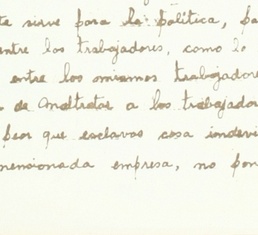 te sirve para la política, pa
entre los trabajadores, como lo
entre los mismos trabajadore
o de maltratar a los trabajador
peor que esclavos cosa indevi
mensionada empresa, no pon